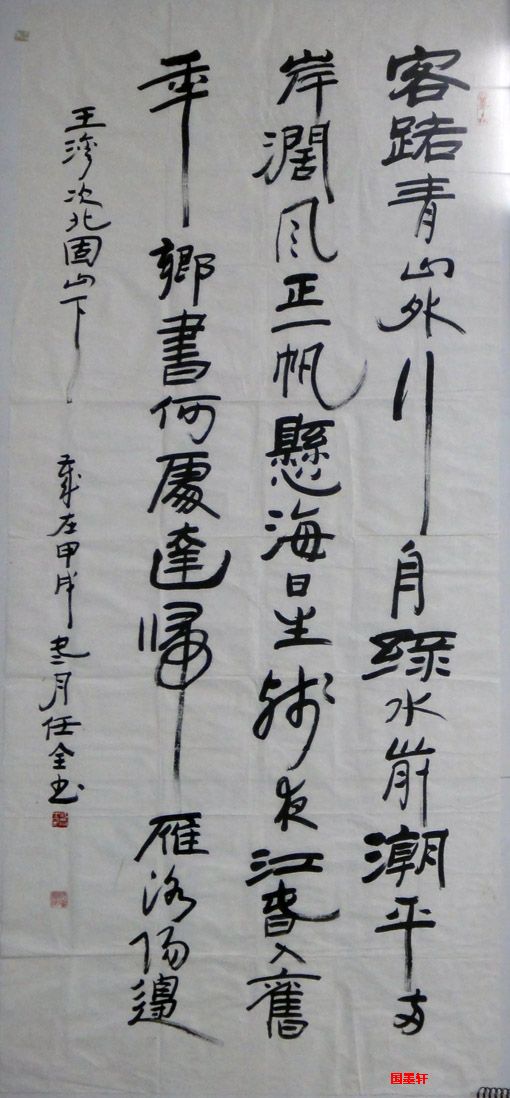 客路青山外行舟綠水前潮平兩
岸濶風正一帆懸海日生殘夜江春入舊
年鄉書何處達歸雁洛陽邊
王灣次北固山下
歲在甲戌月任全书
国墨轩